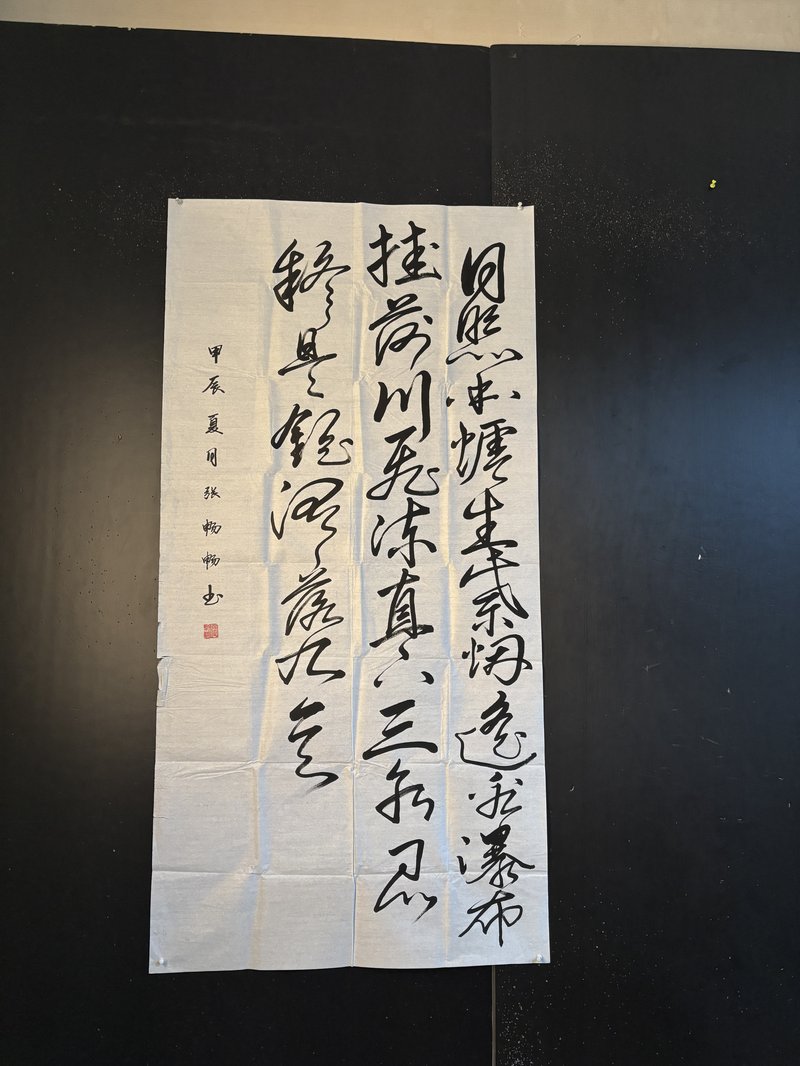 日照香爐生紫烟遙看瀑布
挂前川飛流直下三千尺
疑是銀河落九天
甲辰夏月张畅畅书